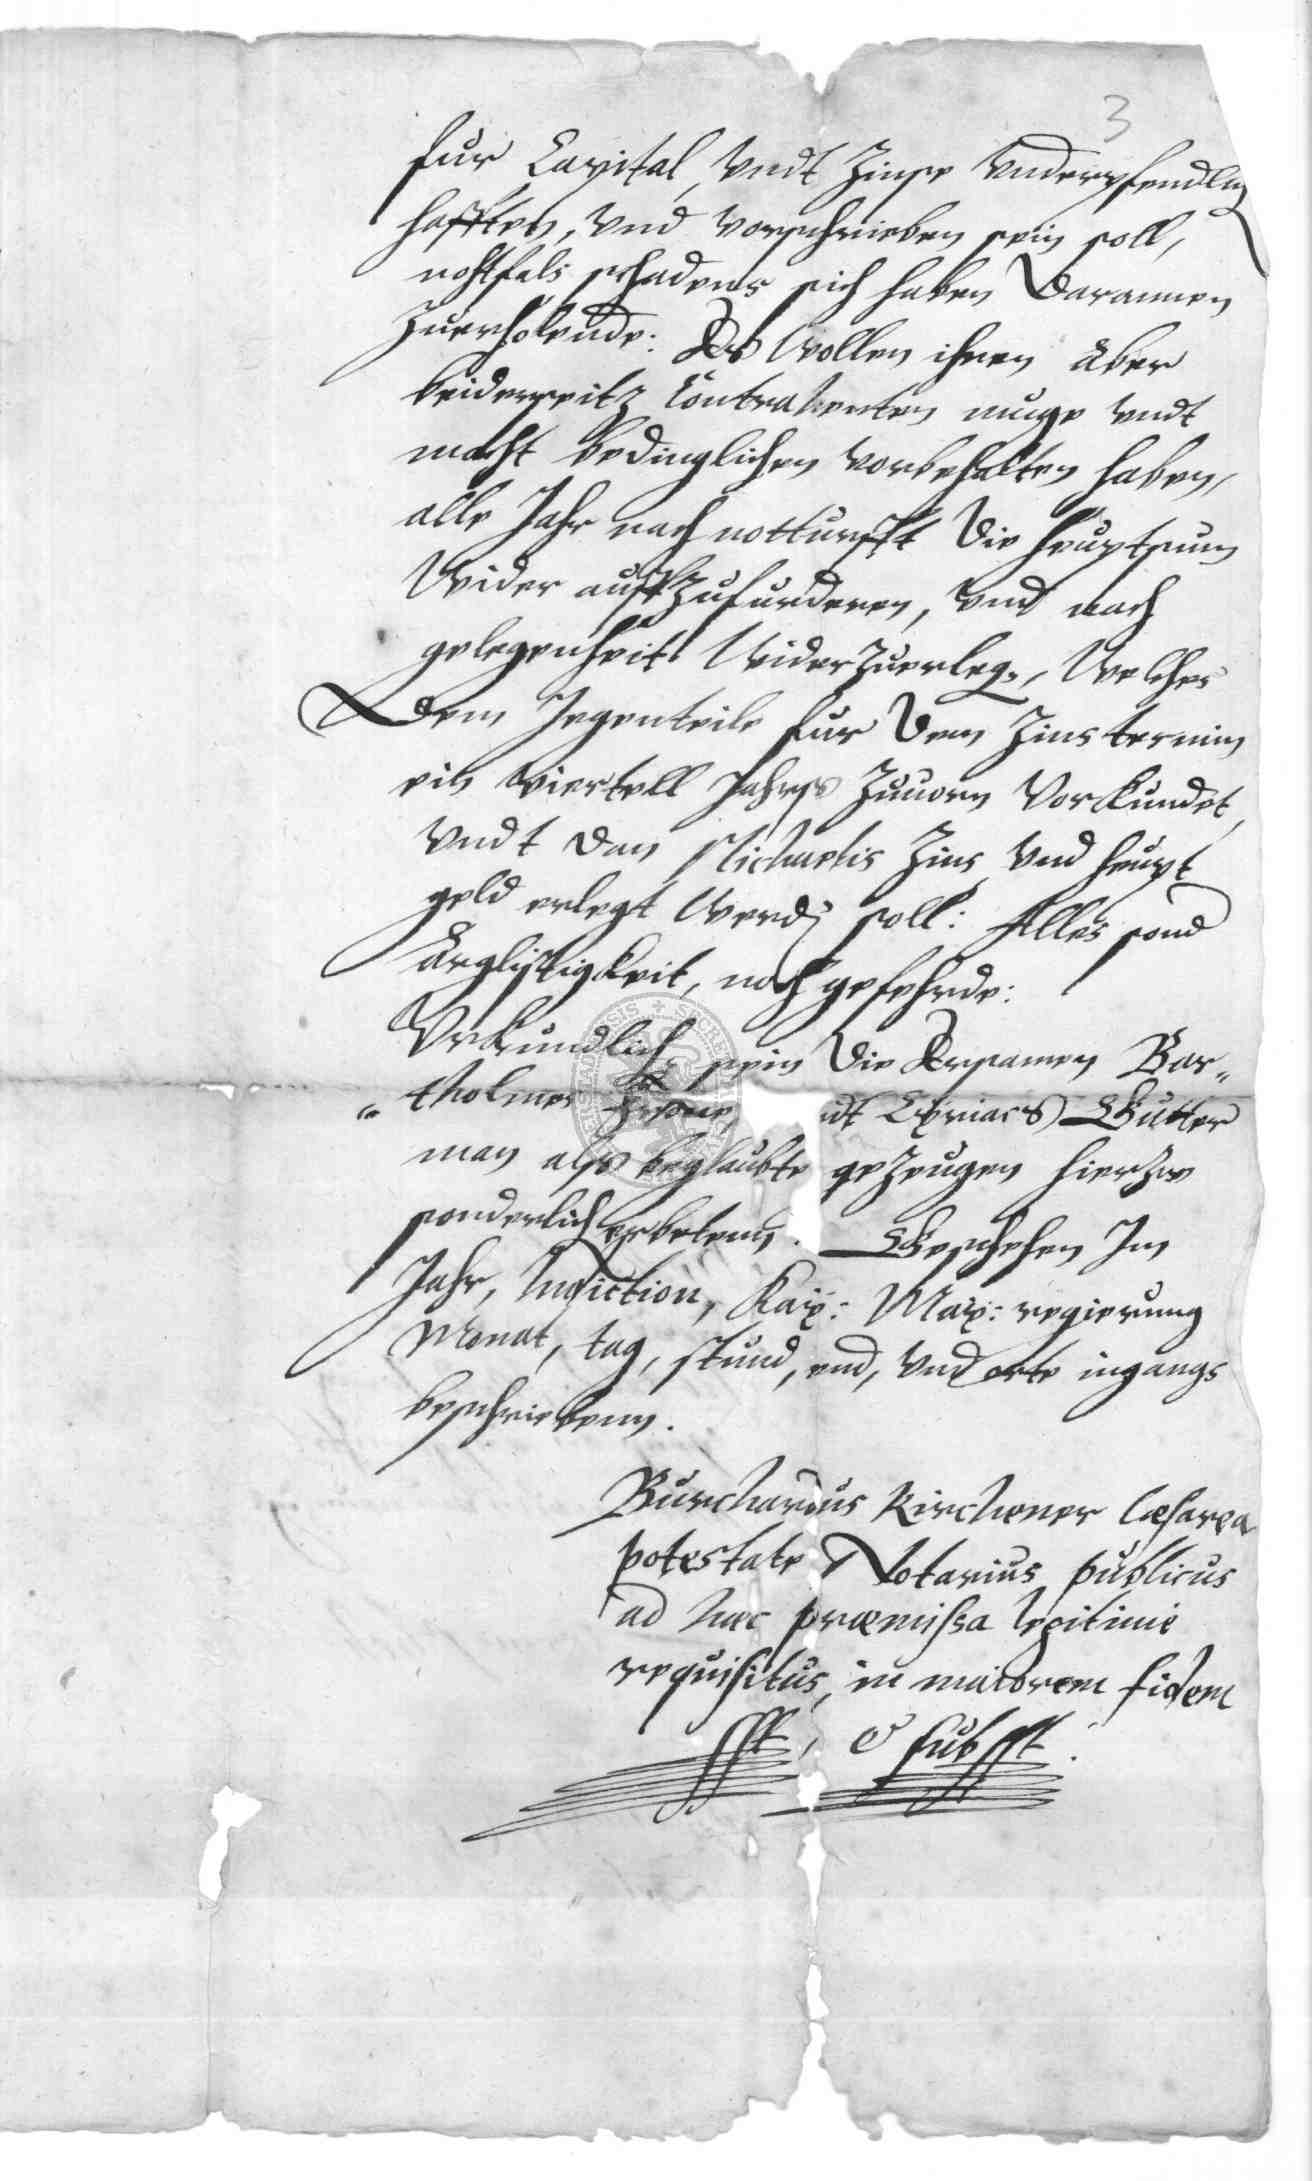 3
fur Capital, vndt Zinse vnderpfendlich
hafften, vnd vorschrieben sein soll,
nohtfals schadens sich haben darannen
Zuerholende: Es wollen ihnen aber
beiderseitz Contrahenten muge vndt
macht bedinglichen vorbehalten haben,
alle Jahr nach notturfft die heuptsum
wider auffzufurderen, vnd nach
gelegenheit widerzuerleg., welches
dem Jegenteile fur dem Zins termin
ein viertell Jahrs zuuorn vorkundet,
vndt dan Michaelis Zins vnd heupt
geld erlegt werd soll: Alles sond
arglistigkeit, noch gefehrde:
Vrkundlich sein die Ersamen Bar„
„tholmes vndt Cyriacs Gutter
man als beglaubte gezeugen hierzu
sonderlich erbetenn. Geschehen Im
Jahr, Indiction, Kaÿ: Maÿ: regierung
Monat, tag, stund, end, vnd orte ingangs
beschriebenn.
Burchardus Kirchener Cæsarea
potestate Notarius publicus
ad hæc præmissa legitime
requisitus, in maiorem fidem
sst, & subsst.